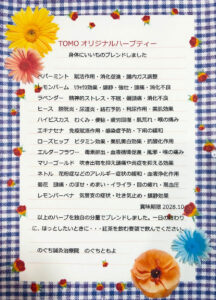 TOMO オリジナルハーブティー
身体にいいものブレンドしました
ペパーミント 鬆活作用・消化促進・腸内ガス調整
レモンバーム リラックス効果・鎮静・強壮・頭痛・消化不良
ラベンダー 精神的ストレス・不眠・偏頭痛・消化不良
ヒース 膀胱炎・尿道炎・結石予防・利尿作用・美肌効果
ハイビスカス むくみ・便秘・疲労回復・肌荒れ・喉の痛み
エキナセア 免疫賦活作用・感染症予防・下痢の緩和
ローズヒップ ビタミン効果・美肌美白効果・抗酸化作用
エルダーフラワー 毒素排出・血液循環促進・風邪・喉の痛み
マリーゴールド 吹き出物を抑え頭痛や炎症を抑える効果
ネトル 花粉症などのアレルギー症状の緩和・血液浄化作用
菊花 頭痛・のぼせ・めまい・イライラ・目の疲れ・高血圧
レモンバーベナ 気管支の症状・吐き気止め・鎮静効果
賞味期限 2028.10
以上のハーブを独自の分量でブレンドしました。一日の終わり
に、ほっとしたいときに・・・紅茶を飲む要領で飲んでください。
のぐち鍼灸治療院 のぐちともよ